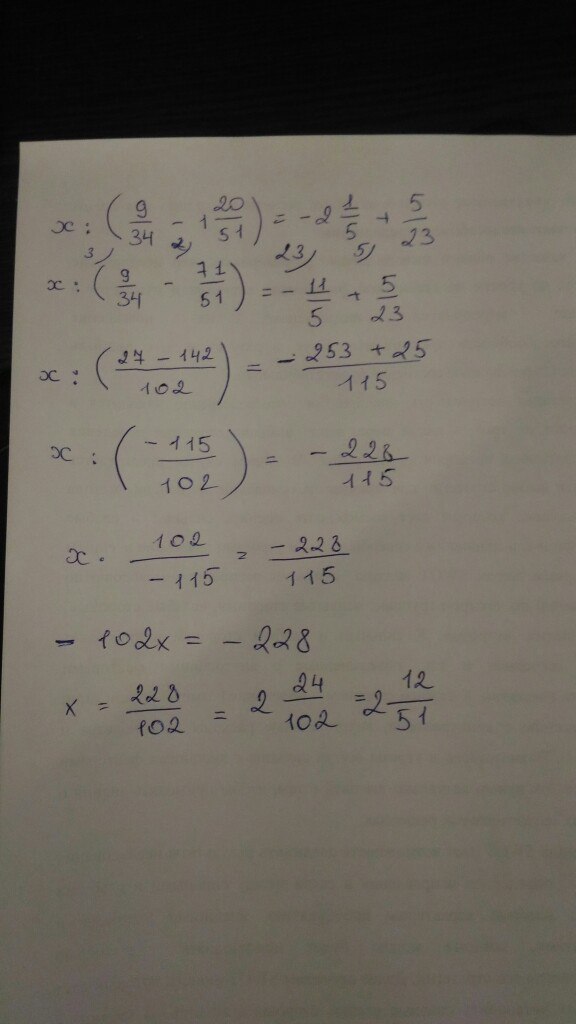 x : (9/34 - 1 20/51) = -2 1/5 + 5/23
3) 2) 23) 5)
x : (9/34 - 71/51) = - 11/5 + 5/23
x : ((27 - 142)/102) = (-253 + 25)/115
x : (-115/102) = -228/115
x · 102/-115 = -228/115
- 102x = - 228
x = 228/102 = 2 24/102 = 2 12/51